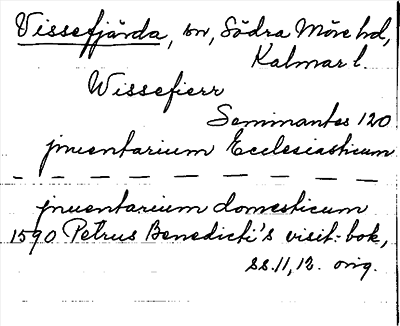 Vissefjärda, sn, Södra Möre hd,
Kalmar l.
Wissefierr
Seminantes 120
jnuentarium Ecclesiasticum
— — — — — — — — — —
jnuentarium domesticum
1590 Petrus Benedicti's visit.-bok,
ss. 11, 12. orig.